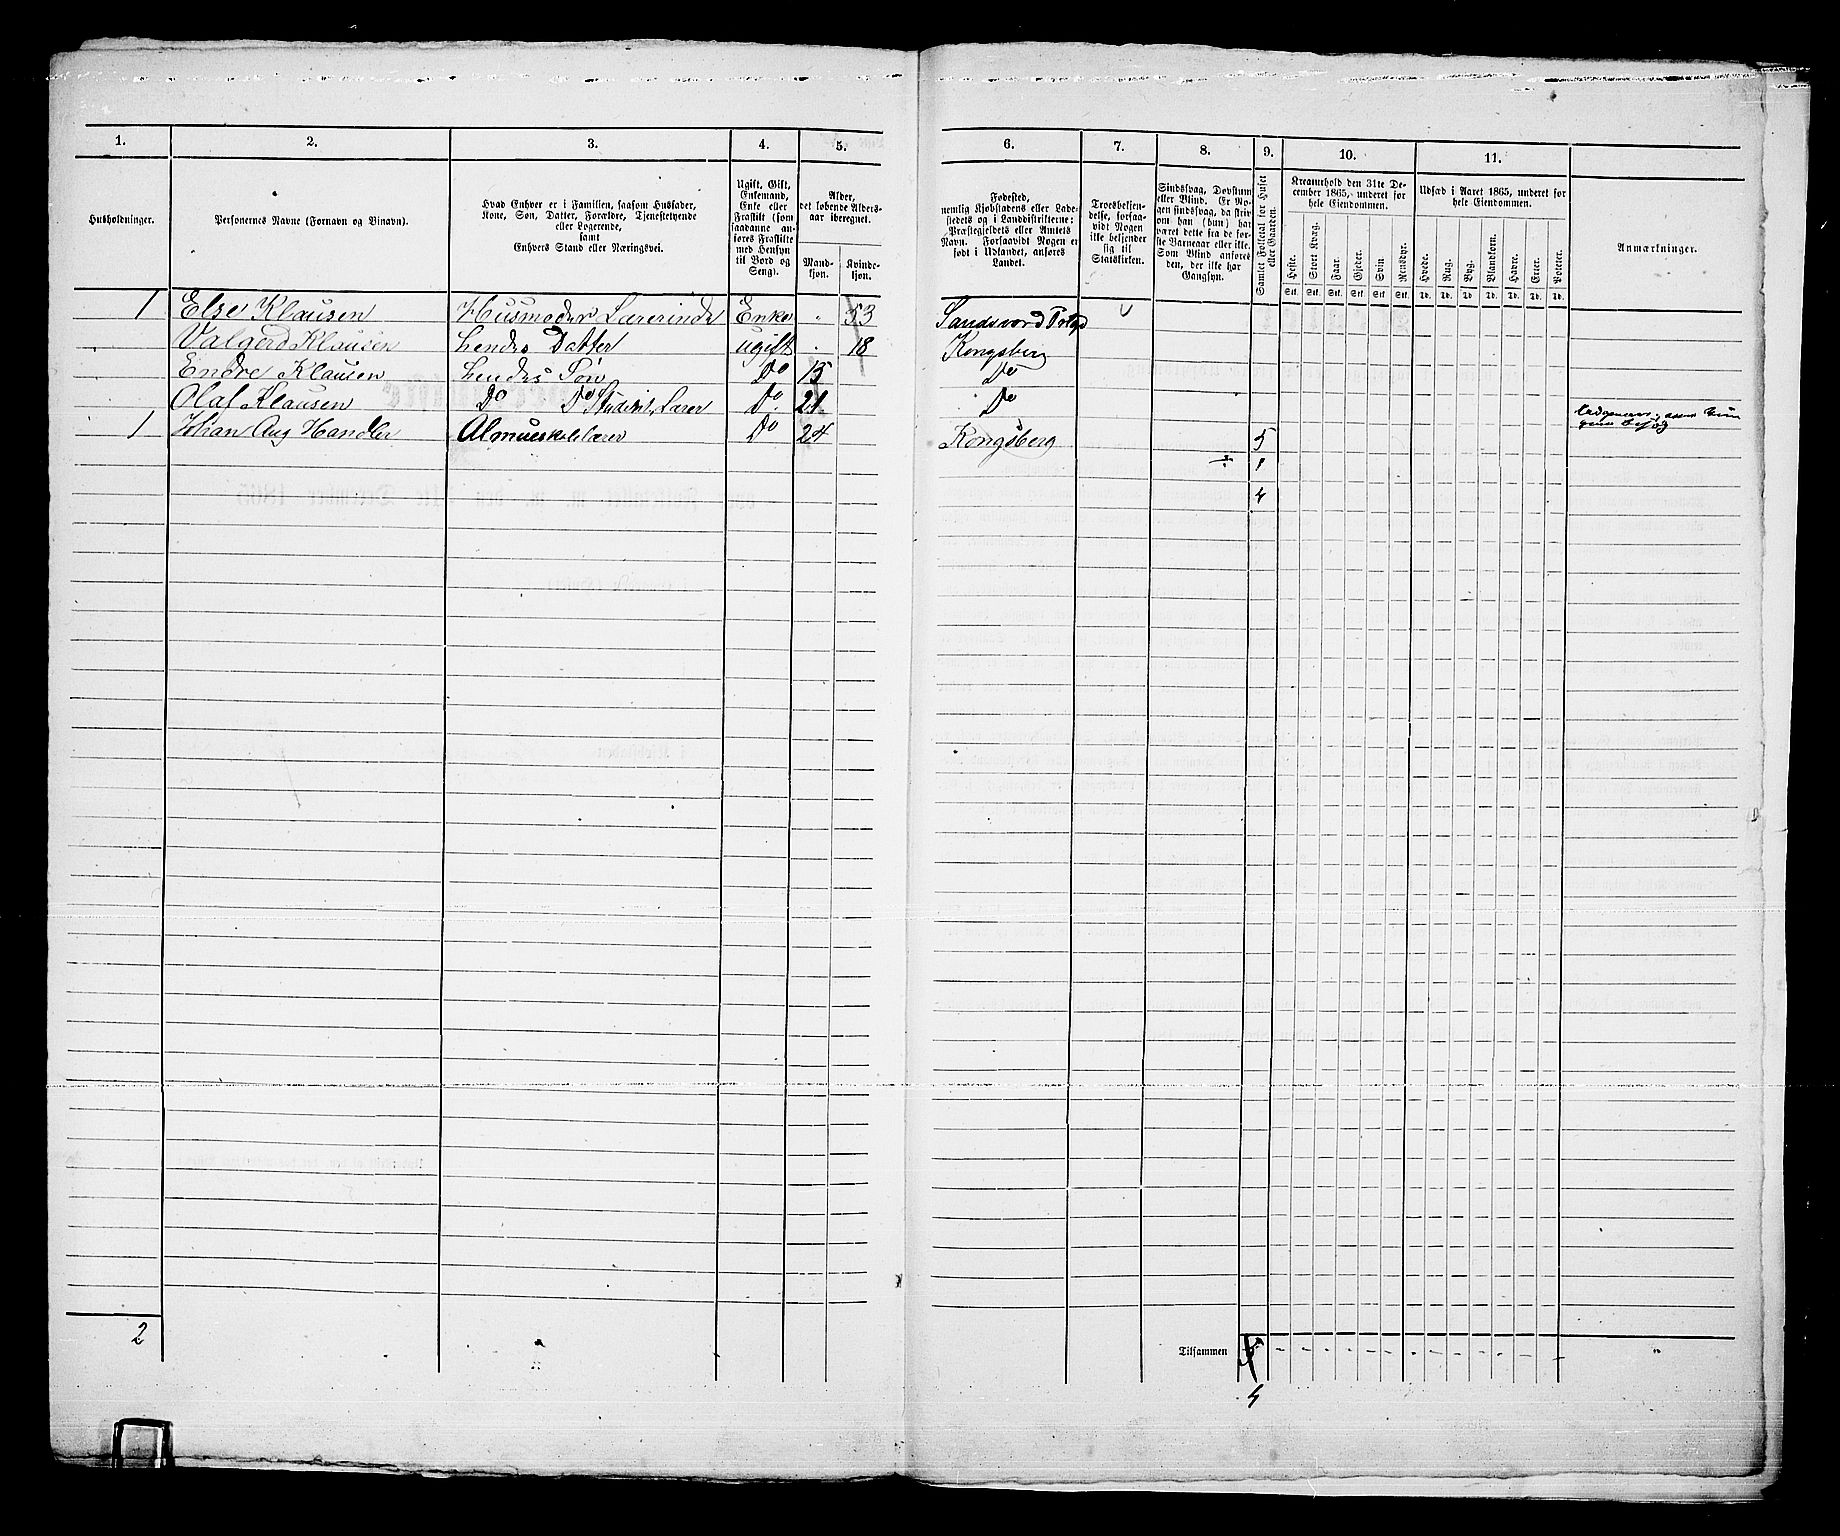 1. 2. 3. 4. 5. 6. 7. 8. 9. 10. 11.
Husholdninger.
Personernes Navne (Fornavn og Binavn).
Hvad Enhver er i Familien, saasom Husfader,
Kone, Søn, Datter, Forældre, Tjenestetyende
eller Logerende,
samt
Enhvers Stand eller Næringsvei.
Ugift, Gift,
Enkemand,
Enke eller
Fraskilt (som
saadanne an-
føres Fraskilte
med Hensyn
til Bord og
Seng).
Alder,
det løbende Alders-
aar iberegnet.
Mand-
kjøn.
Kvinde-
kjøn.
Fødested,
nemlig Kjøbstadens eller Lade-
stedets og i Landdistrikterne:
Præstegjeldets eller Amtets
Navn. Forsaavidt Nogen er
født i Udlandet, anføres
Landet.
Troesbekjen-
delse, forsaa-
vidt Nogen
ikke bekjender
sig til
Statskirken.
Sindssvag, Døvstum
eller Blind. Er No-
gen sindssvag, da skriv
om han (hun) har
været dette fra de før-
ste Barneaar eller ikke.
Som Blind anføres
den, der ikke har
Gangsyn.
Samlet Folketal for Huset
eller Gaarden.
Kreaturhold den 31te De-
cember 1865, underet for
hele Eiendommen.
Heste. Stort Kvæg. Faar. Gjeder. Svin. Rensdyr.
Stk. Stk. Stk. Stk. Stk. Stk.
Udsæd i Aaret 1865, underet for
hele Eiendommen.
Hvede. Rug. Byg. Blandkorn. Havre. Erter. Poteter.
Td. Td. Td. Td. Td. Td. Td.
Anmærkninger.
1 Else Klausen Husmoder Lærerinde Enke " 53 Sandsvord Prtgd
Valgerd Klausen hendes Datter ugift " 18 Kongsberg
Endre Klausen hendes Søn Do 15 Do
Olaf Klausen Do Do Student, Lærer Do 21 Do
1 Johan Aug Handler Almueskolelærer Do 24 Kongsberg 5
÷ 1
4
2
Tilsammen 5
4